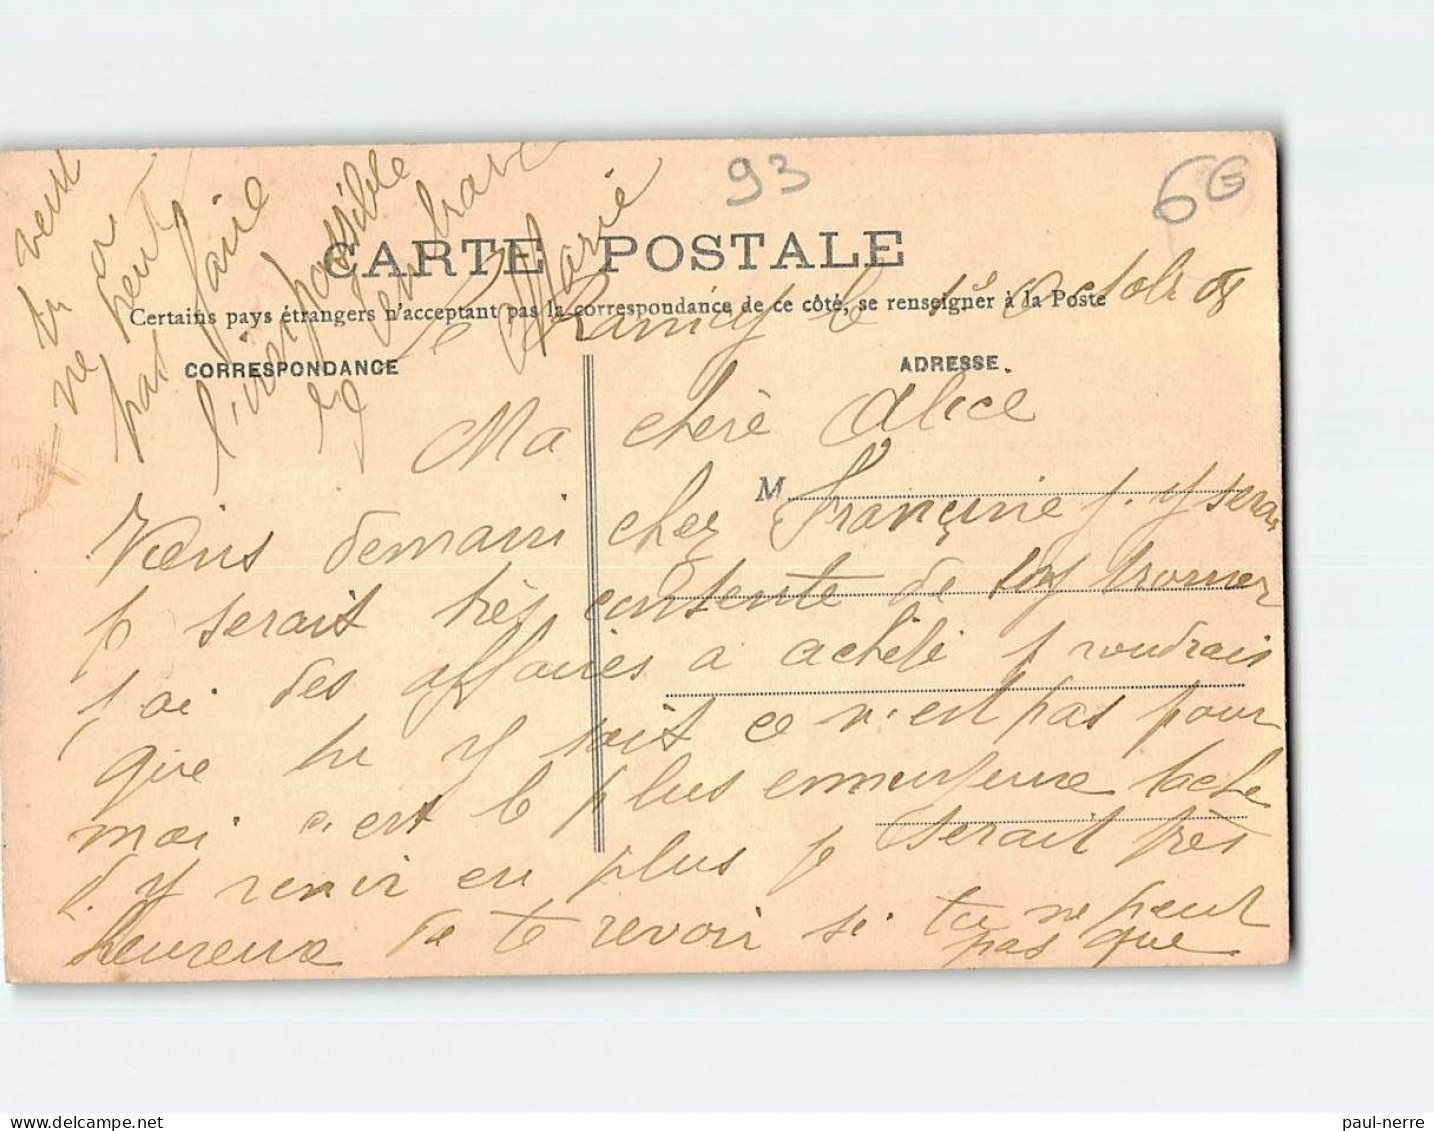 93
6G
CARTE POSTALE
Certains pays étrangers n'acceptant pas la correspondance de ce côté, se renseigner à la Poste
CORRESPONDANCE
ADRESSE
M
Le Raincy le 1er Octobre 08
Ma chère Alice
Viens demain chez Françine j. y serai
je serait très contente de t'y trouver
j'ai des affaires a acheté je voudrais
que tu y soit ce n'est pas pour
moi c'est le plus ennuyeuse tache
d'y venir en plus je serait très
heureuse de te revoir si tu ne peut
pas que
veut
tu
on
ne peut
pas faire
l'impossible
Je t'embrasse
Marie
paul-nerre